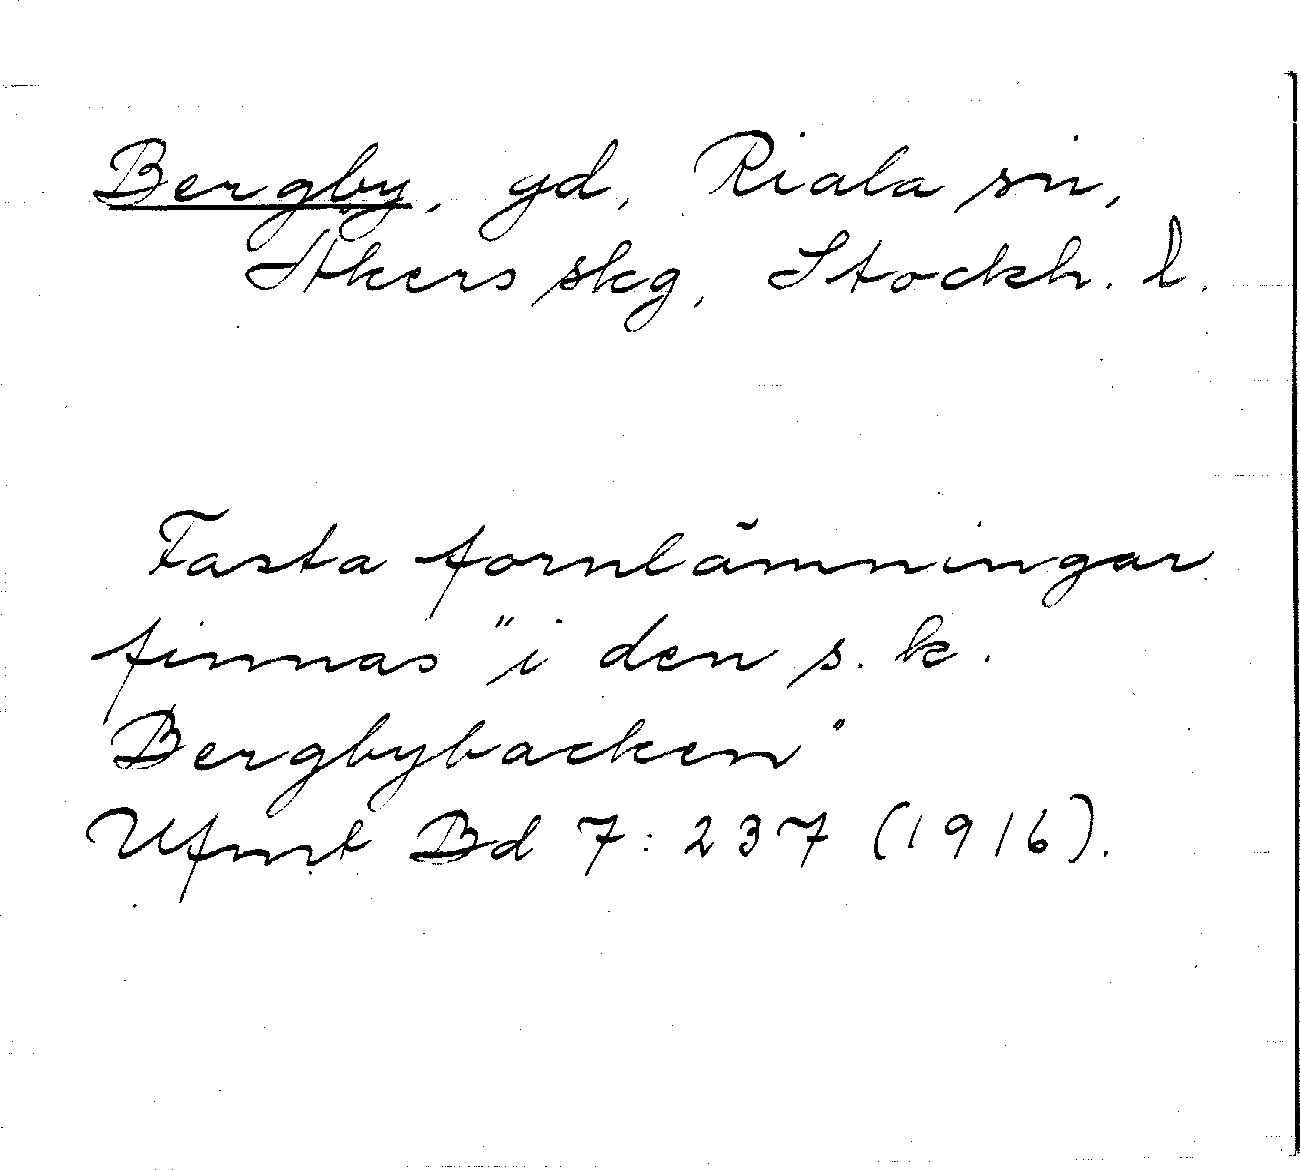 Bergby, gd, Riala sn,
Åkers skg, Stockh. l.
Fasta fornlämningar
finnas "i den s. k.
Bergbybacken"
Ufmt Bd 7: 237 (1916).